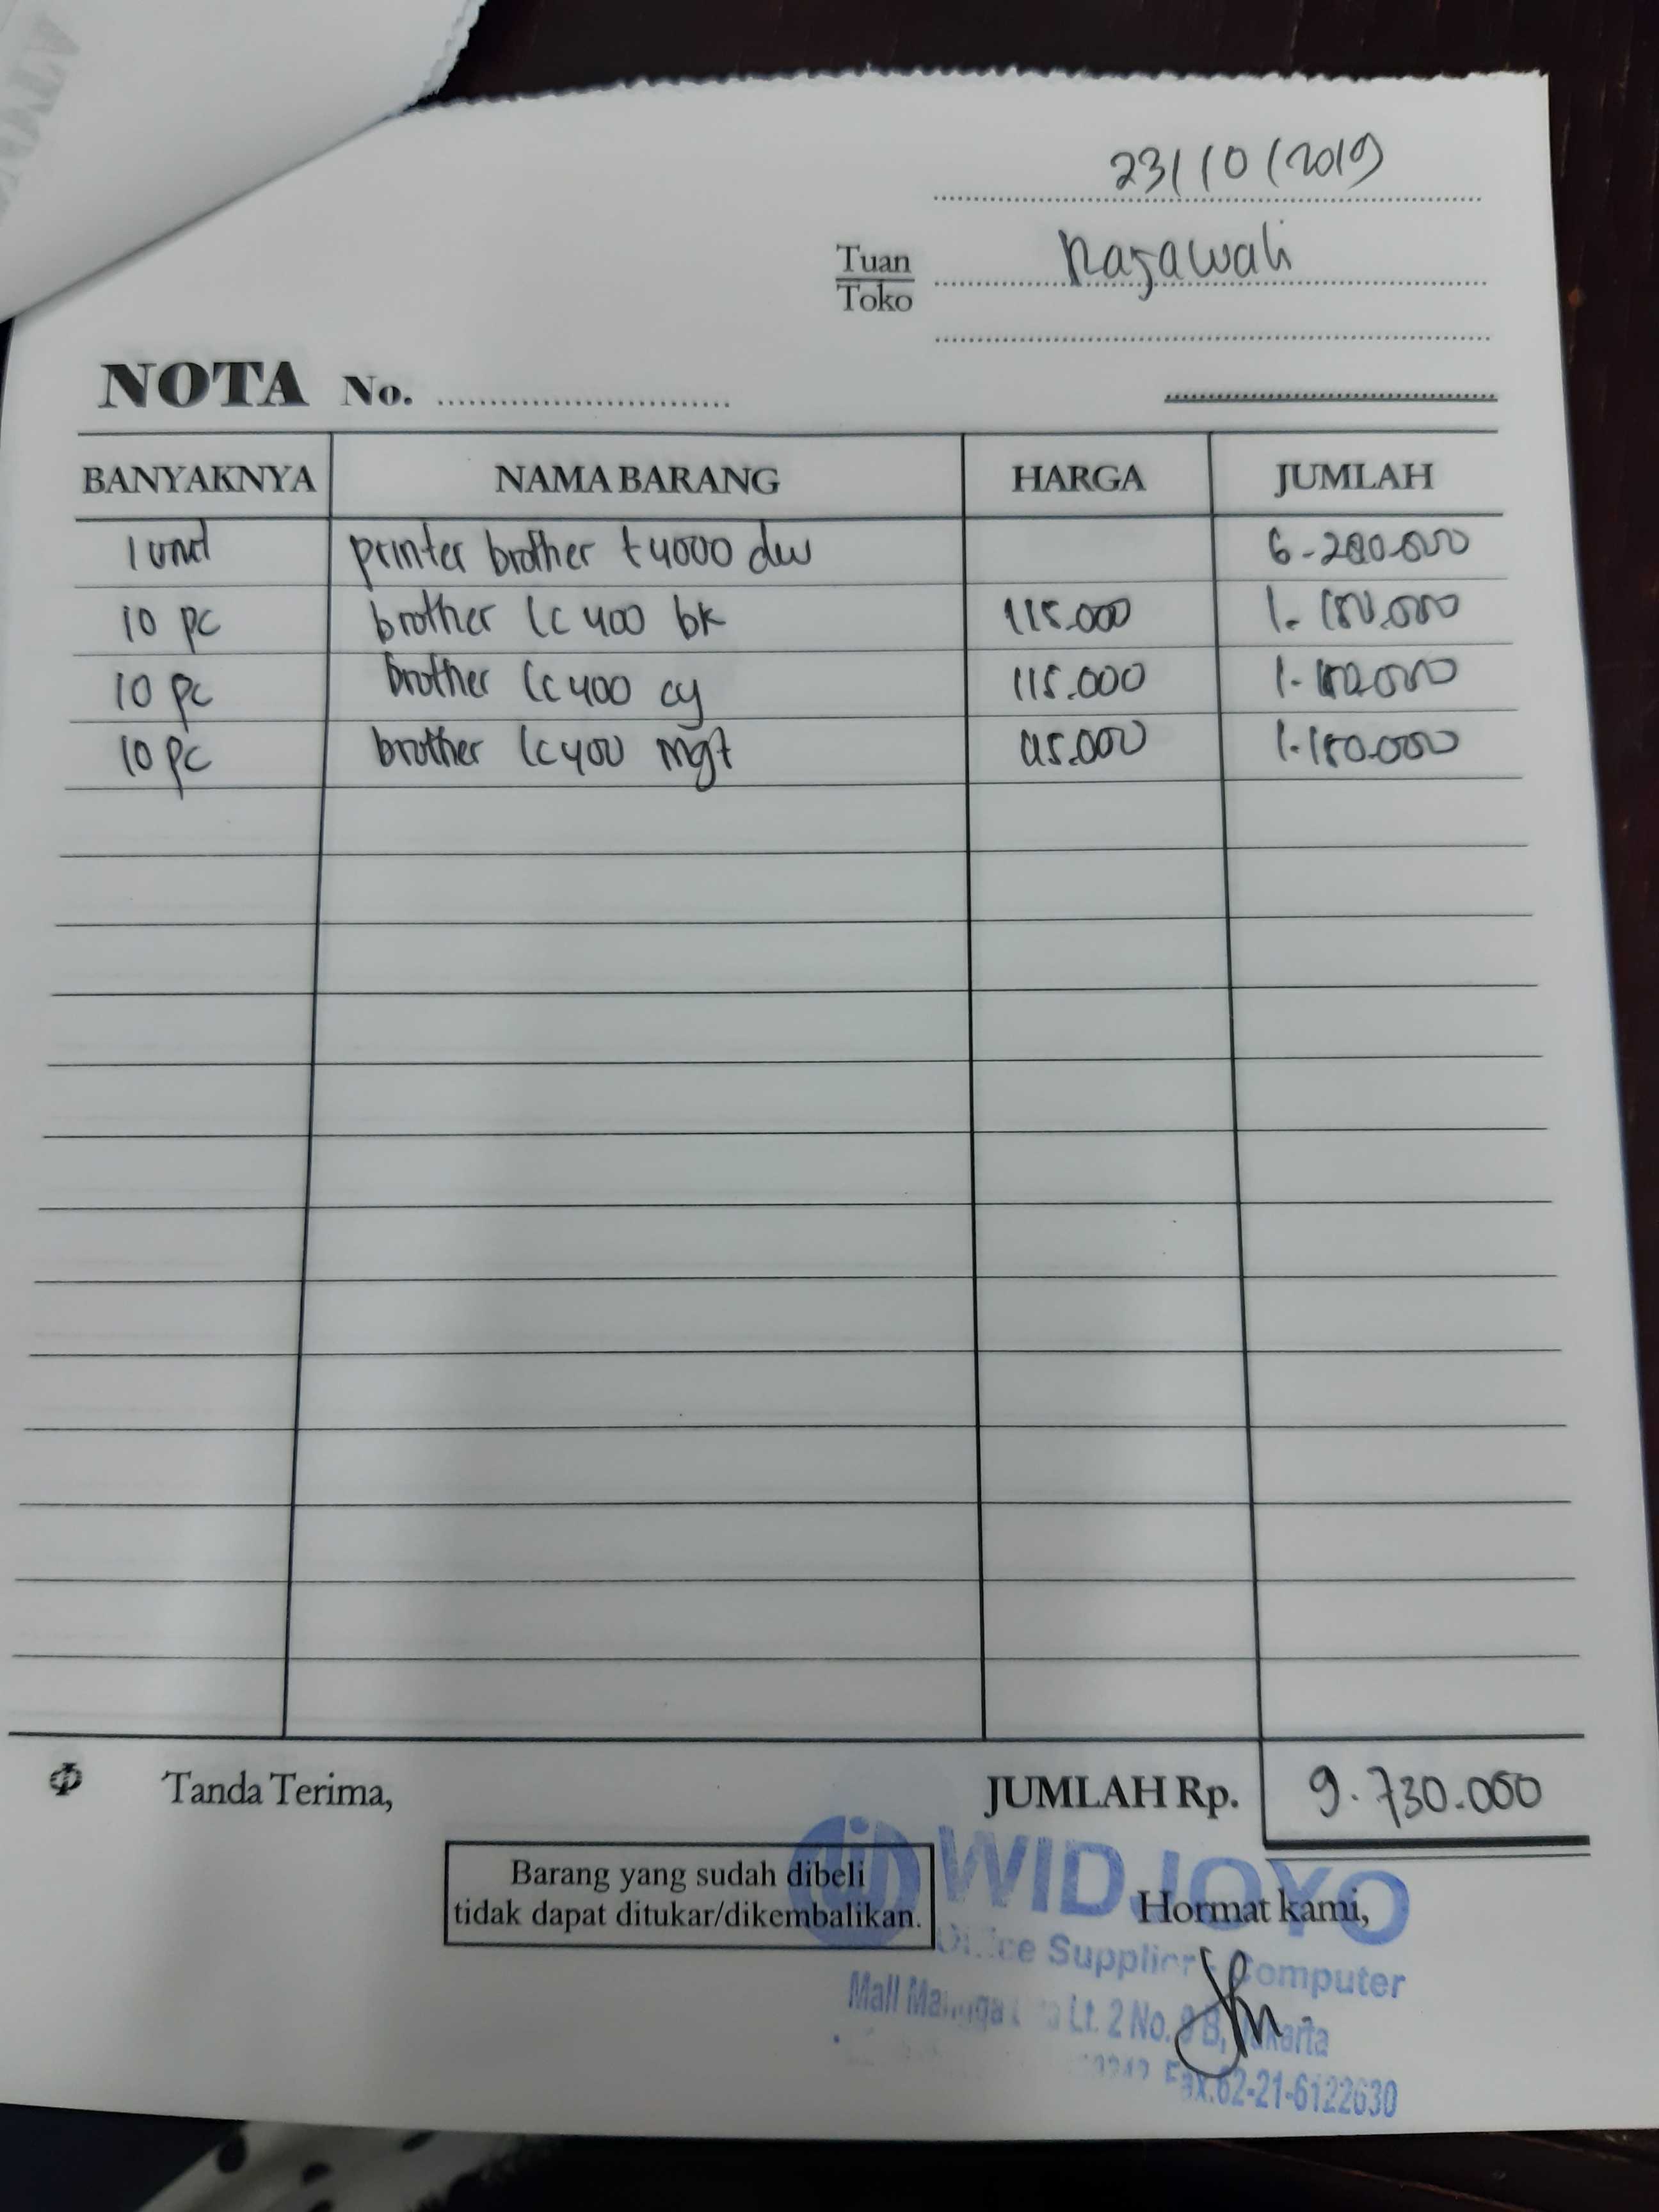 23/10/2019
Tuan
Toko
Rajawali
NOTA No.
BANYAKNYA NAMA BARANG HARGA JUMLAH
1 unit printer brother t4000 dw 6.280.000
10 pc brother lc 400 bk 115.000 1.150.000
10 pc brother lc 400 cy 115.000 1.150.000
10 pc brother lc 400 mgt 115.000 1.150.000
Tanda Terima, JUMLAH Rp. 9.730.000
Barang yang sudah dibeli
tidak dapat ditukar/dikembalikan.
Hormat kami,
WIDJOYO
Office Supplier Computer
Mall Mangga Lt. 2 No. 9 B, Jakarta
Fax.62-21-6122630